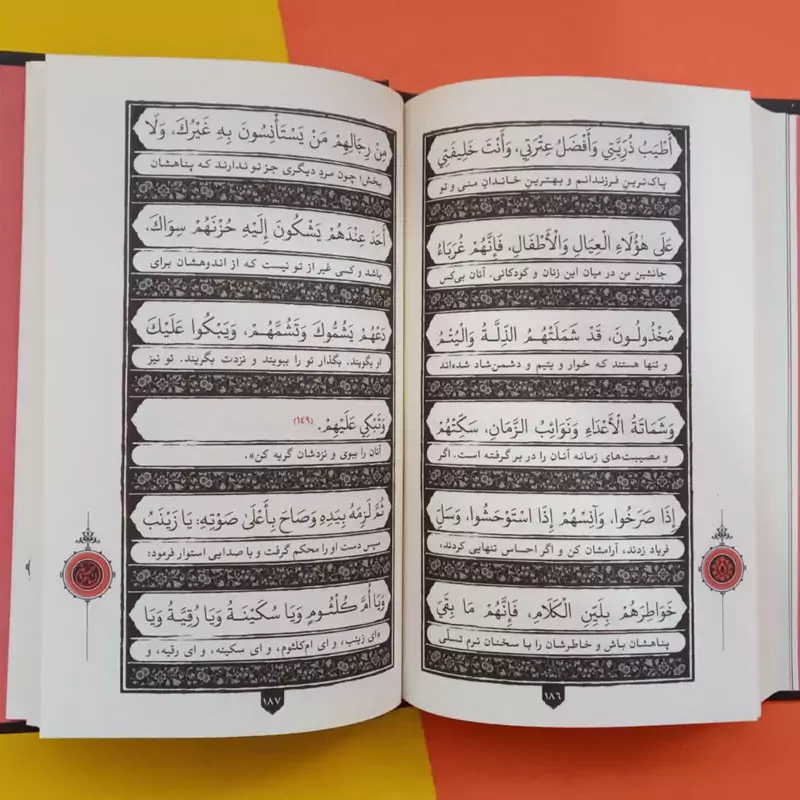 أَطْيَبُ ذُرِّيَّتِي وَأَفْضَلُ عِتْرَتِي، وَأَنْتَ خَلِيفَتِي
پاک‌ترینِ فرزندانم و بهترینِ خاندانِ منی و تو
عَلَى هٰؤُلَاءِ الْعِيَالِ وَالْأَطْفَالِ، فَإِنَّهُمْ غُرَبَاءُ
جانشین من در میان این زنان و کودکانی. آنان بی‌کس
مَخْذُولُونَ، قَدْ شَمَلَتْهُمُ الذِّلَّةُ وَالْيُتْمُ
و تنها هستند که خوار و یتیم و دشمن‌شاد شده‌اند
وَشَمَاتَةُ الْأَعْدَاءِ وَنَوَائِبُ الزَّمَانِ، سَكِّتْهُمْ
و مصیبت‌های زمانه آنان را در بر گرفته است. اگر
إِذَا صَرَخُوا، وَآنِسْهُمْ إِذَا اسْتَوْحَشُوا، وَسَلِّ
فریاد زدند، آرامشان کن و اگر احساس تنهایی کردند،
خَوَاطِرَهُمْ بِلَيِّنِ الْكَلَامِ، فَإِنَّهُمْ مَا بَقِيَ
پناهشان باش و خاطرشان را با سخنان نرم تسلّی
١٨٦
مِنْ رِجَالِهِمْ مَنْ يَسْتَأْنِسُونَ بِهِ غَيْرُكَ، وَلَا
بخش؛ چون مردِ دیگری جز تو ندارند که پناهشان
أَحَدَ عِنْدَهُمْ يَشْكُونَ إِلَيْهِ حُزْنَهُمْ سِوَاكَ،
باشد و کسی غیر از تو نیست که از اندوهشان برای
دَعْهُمْ يَشُمُّوكَ وَتَشُمَّهُمْ، وَيَبْكُوا عَلَيْكَ
او بگویند. بگذار تو را ببویند و نزدت بگریند. تو نیز
وَتَبْكِي عَلَيْهِمْ. (١٤٩)
آنان را ببوی و نزدشان گریه کن».
ثُمَّ لَزِمَهُ بِيَدِهِ وَصَاحَ بِأَعْلَى صَوْتِهِ: يَا زَيْنَبُ
سپس دست او را محکم گرفت و با صدایی استوار فرمود:
وَيَا أُمَّ كُلْثُومٍ وَيَا سُكَيْنَةُ وَيَا رُقَيَّةُ وَيَا
«ای زینب، و ای ام‌کلثوم، و ای سکینه، و ای رقیه، و
١٨٧